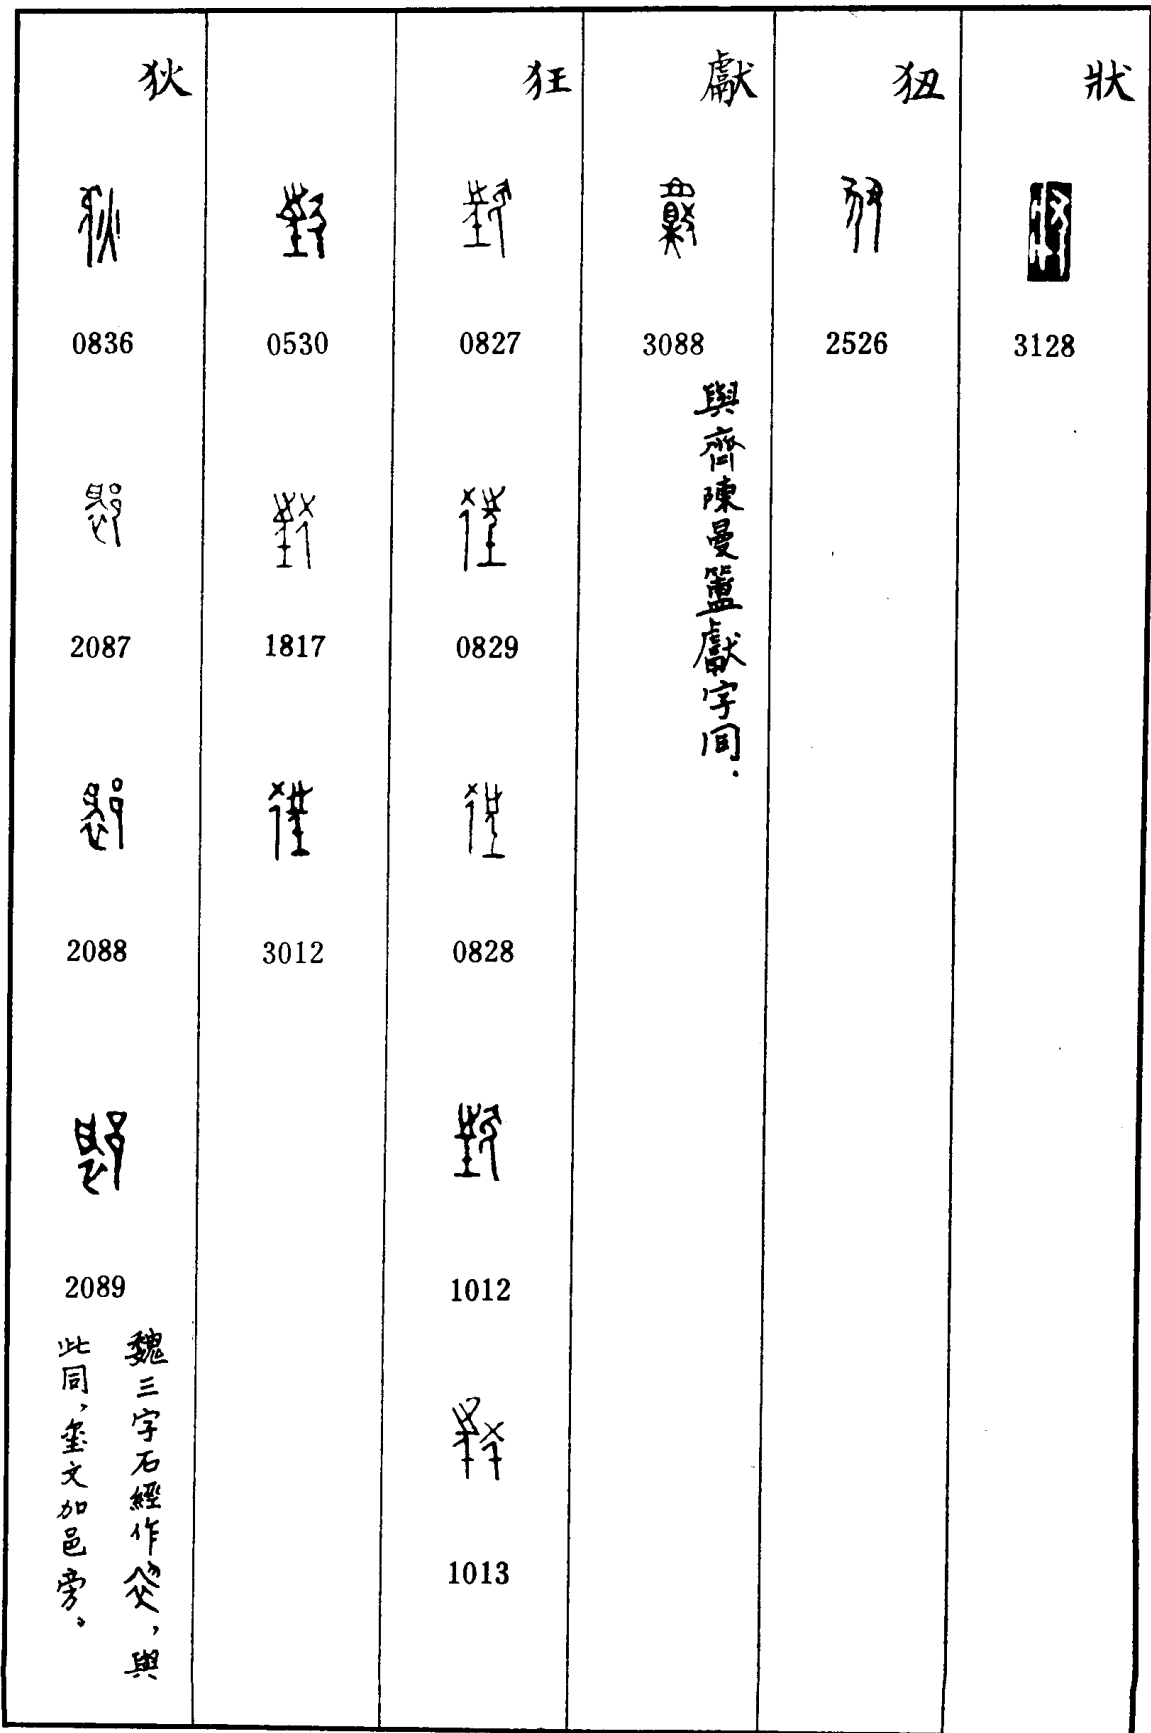 狀
3128
狃
2526
獻
3088
與齊陳曼簠獻字同.
狂
0827
0829
0828
1012
1013
0530
1817
3012
狄
0836
2087
2088
2089
魏三字石經作，與
此同，璽文加邑旁。